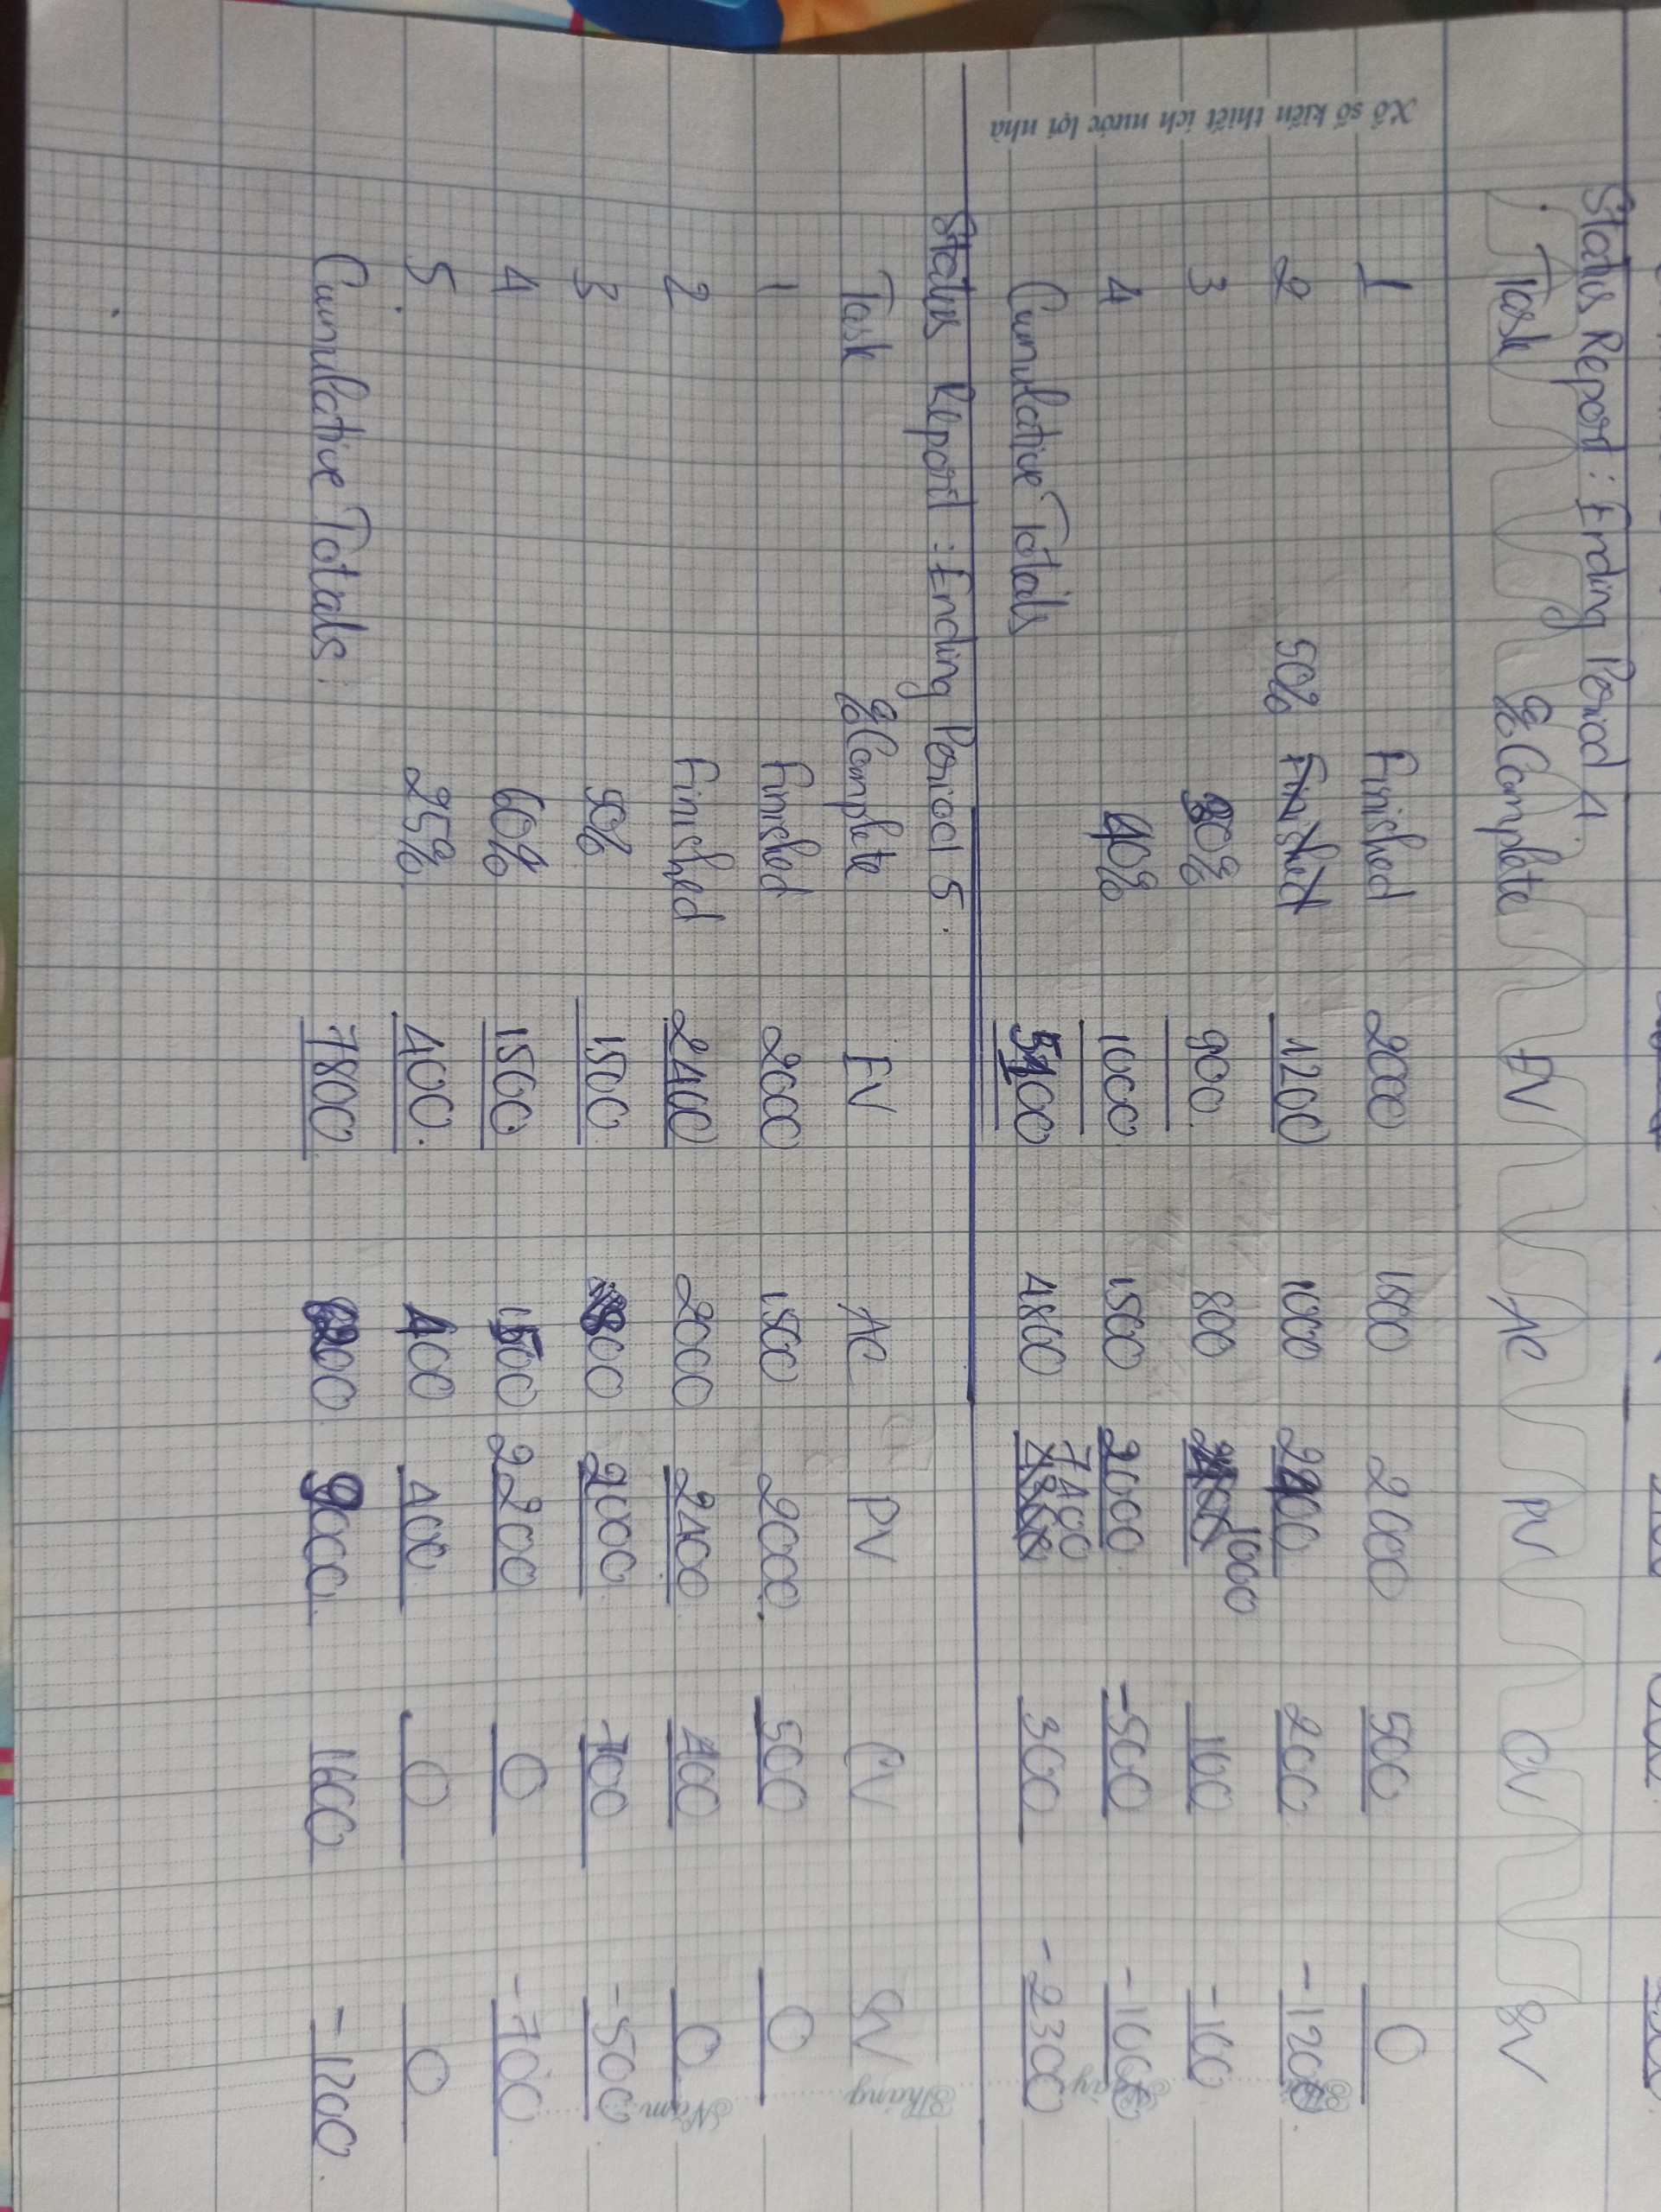 Status Report: Ending Period 4.
Task %Complete EV AC PV CV SV
1 Finished 2000 1500 2000 500 0
2 50% Finished 1200 1000 2400 200 -1200.
3 30% 900. 800 1000 100 -100
4 40% 1000 1500 2000 -500 -1000
7400
Cumulative Totals 5100 4800 4800 300 -2300
Status Report: Ending Period 5.
Task %Complete EV AC PV CV SV
1 Finished 2000 1500 2000. 500 0
2 Finished 2400 2000 2400 400 0
3 50% 1500 800 2000 700 -500
4 60% 1500 1500 2200 0 -700
5. 25% 400. 400 400 0 0
Cumulative Totals: 7800 6200 9000. 1600 -1200.
Xổ số kiến thiết ích nước lợi nhà
Tháng
Năm